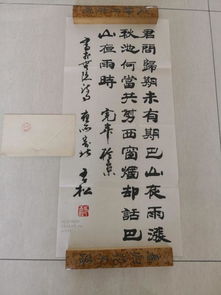 君問歸期未有期巴山夜雨漲
秋池何當共剪西窗燭却話巴
山夜雨時
青松